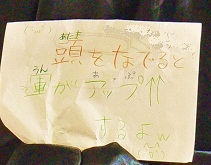 あたま
頭をなでると
うん
運がアップ↑↑
するよw